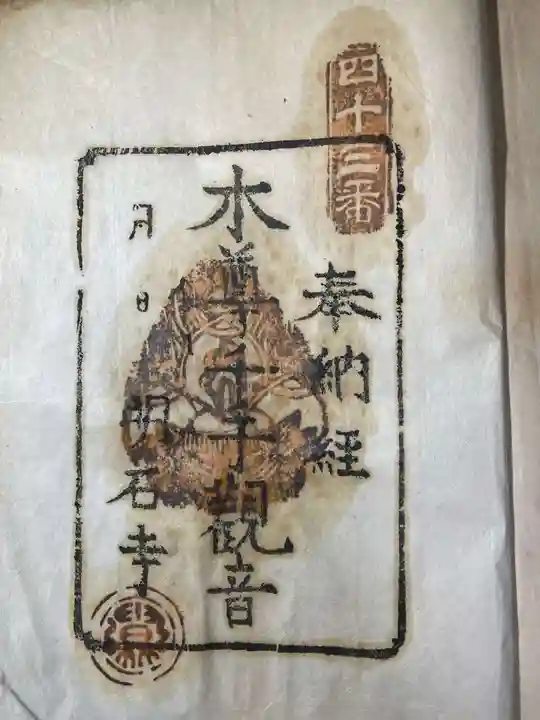 四十三番
奉納経
水尊千手観音
月日
明石寺